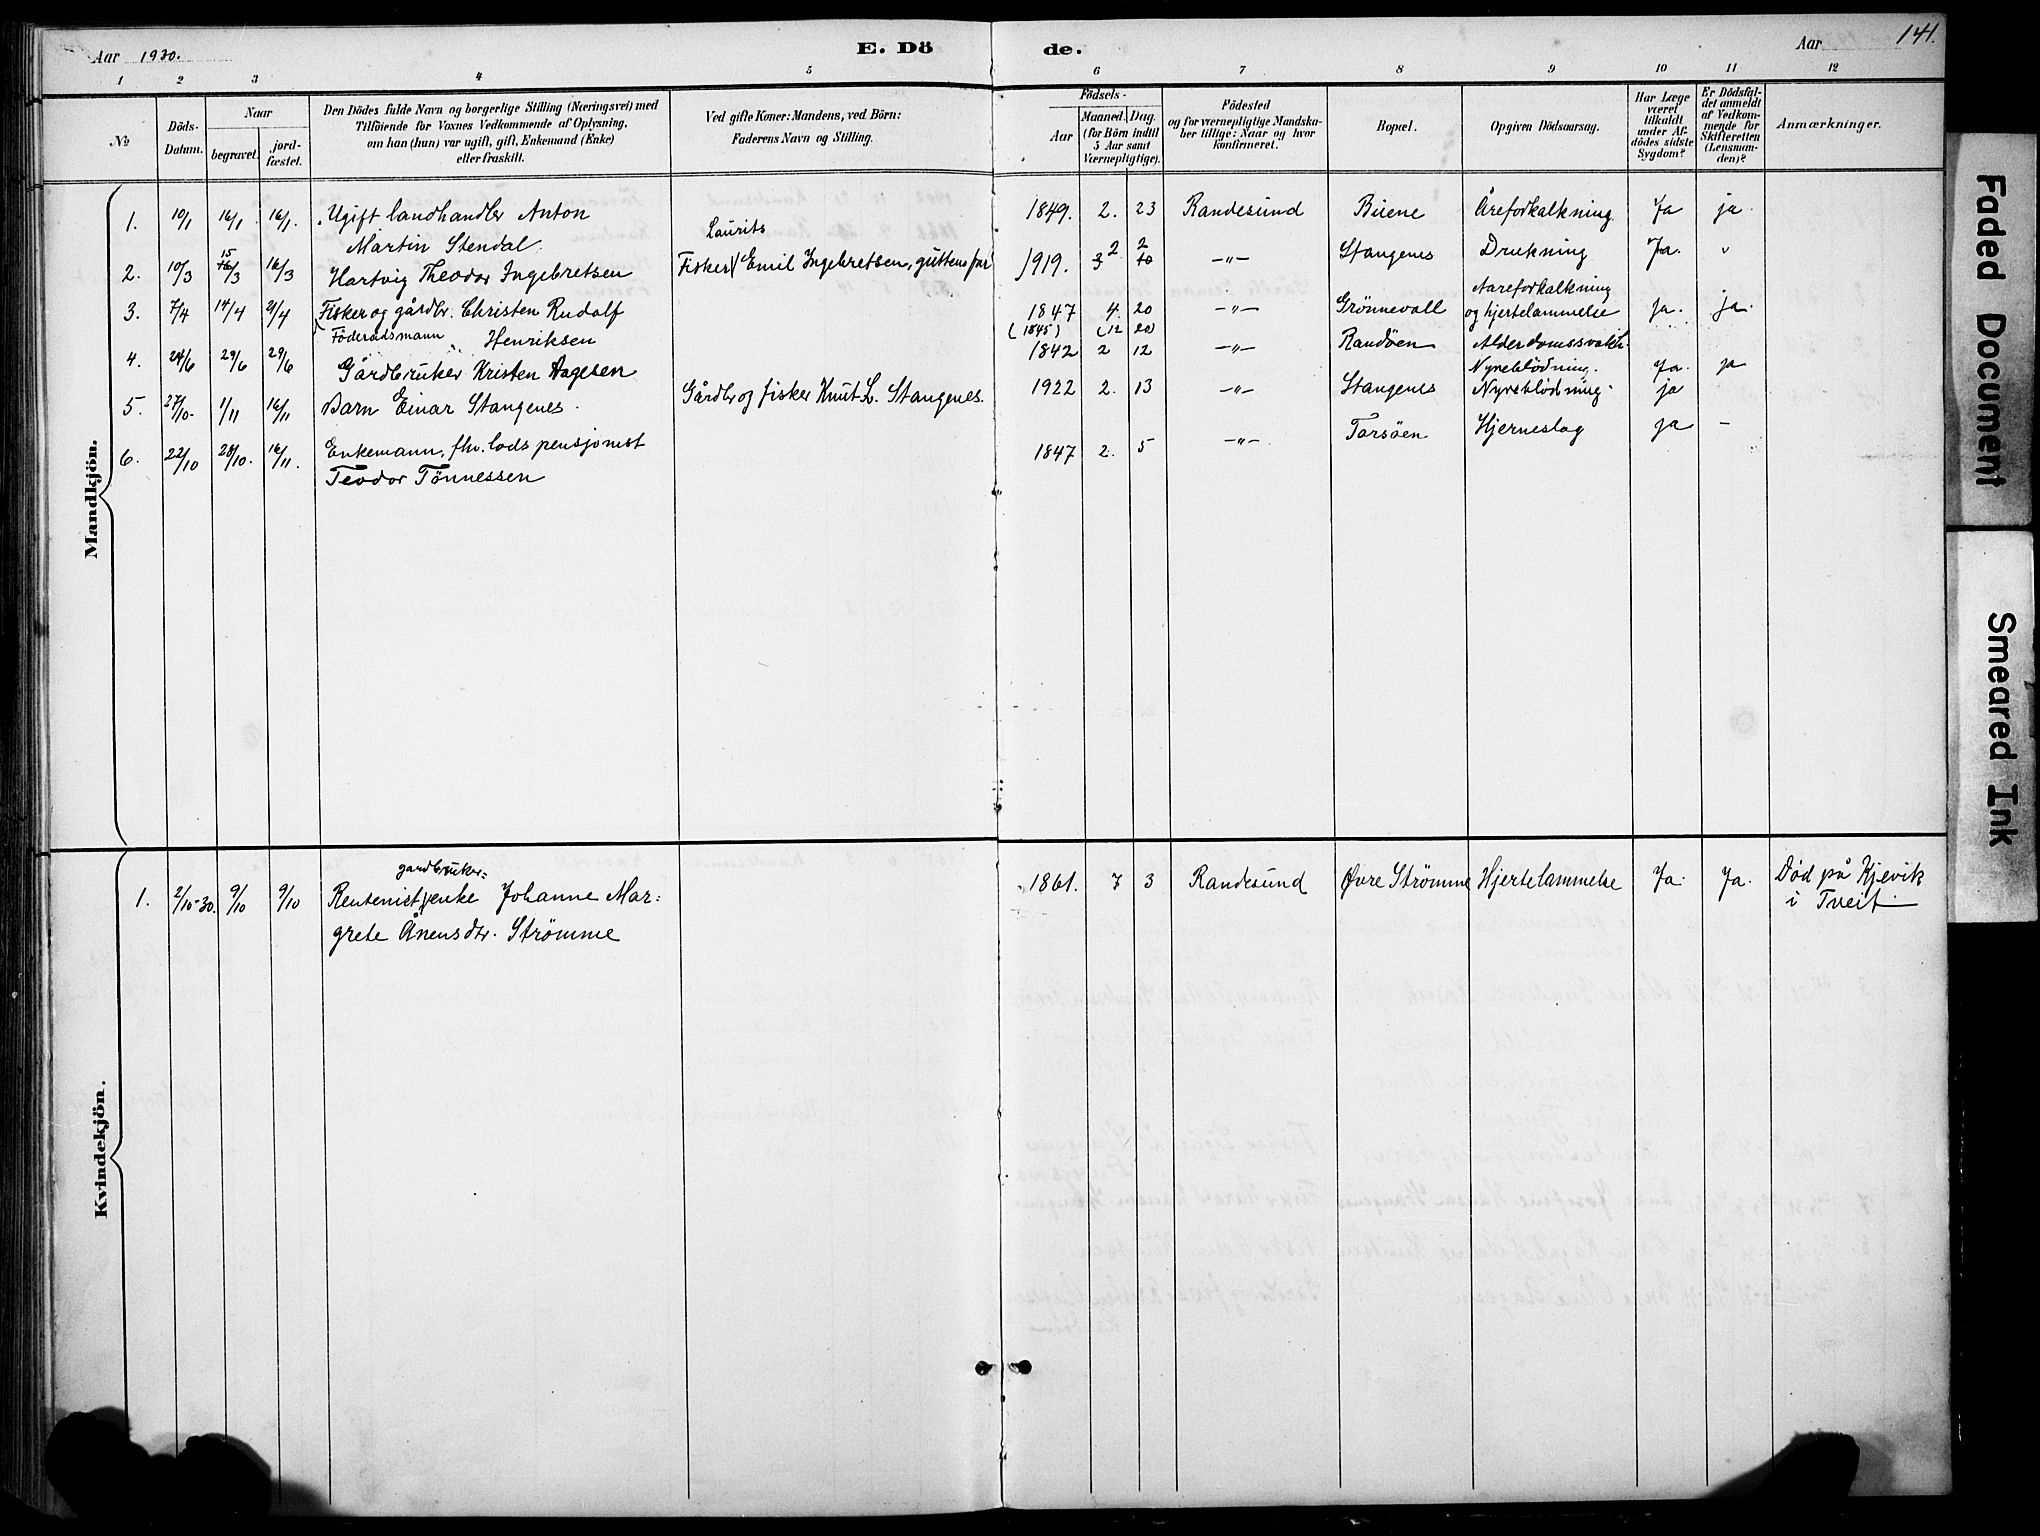 Aar 1930. E. Dö de. Aar 141.
1 2 3 4 5 6 7 8 9 10 11 12
No
Döds-Datum.
Naar
begravet.
jordfæstet.
Den Dödes fulde Navn og borgerlige Stilling (Næringsvei) med
Tilföiende for Voxnes Vedkommende af Oplysning,
om han (hun) var ugift, gift, Enkemand (Enke)
eller fraskilt.
Ved gifte Koner: Mandens, ved Börn:
Faderens Navn og Stilling.
Födsels-
Aar
Maaned. Dag.
(for Börn indtil
5 Aar samt
Værnepligtige).
Födested
og for værnepligtige Mandska-
ber tillige: Naar og hvor
konfirmeret.
Bopæl.
Opgiven Dödsaarsag.
Har Læge
været
tilkaldt
under Af-
dödes sidste
Sygdom?
Er Dödsfal-
det anmeldt
af Vedkom-
mende for
Skifteretten
(Lensman-
den)?
Anmærkninger.
Mandkjön.
1. 10/1 16/1 16/1 Ugift landhandler Anton 1849. 2. 23 Randesund Buene Åreforkalkning Ja ja
Martin Stendal
Laurits
2. 10/3 15 16/3 16/3 Hartvig Theodor Ingebretsen Fisker Emil Ingebretsen, guttens far 1919. 3 2 10 2 -"- Stangenes Drukning Ja. "
3. 7/4 14/4 21/4 Fisker og gårdbr. Christen Rudolf 1847 4. 20 -"- Grönnevoll Aareforkalkning og hjertelammelse Ja. ja.
(Föderådsmann Henriksen (1845) (12 20)
4. 24/6 29/6 29/6 Gårdbruker Kristen Aagesen 1842 2 12 -"- Randöen Alderdomssvakh. Nyreblödning. Ja. ja
5. 27/10- 1/11 16/11 Barn Einar Stangenes. Gårdbr og fisker Knut L. Stangenes. 1922 2. 13 -"- Stangenes Nyreblödning. ja
6. 22/10 28/10. 16/11. Enkemann, fhv. lods pensjonist 1847 2. 5 -"- Torsöen Hjerneslag ja -
Teodor Tönnessen
Kvindekjön.
gardbruker=
1. 2/10-30. 9/10 9/10 Rentenist enke Johanne Mar= 1861. 7 3 Randesund Øvre Strömme Hjertelammelse Ja. Ja. Död på Kjevik
grete Ånensdtr. Strömme i Tveit.
Faded Document
Smeared Ink